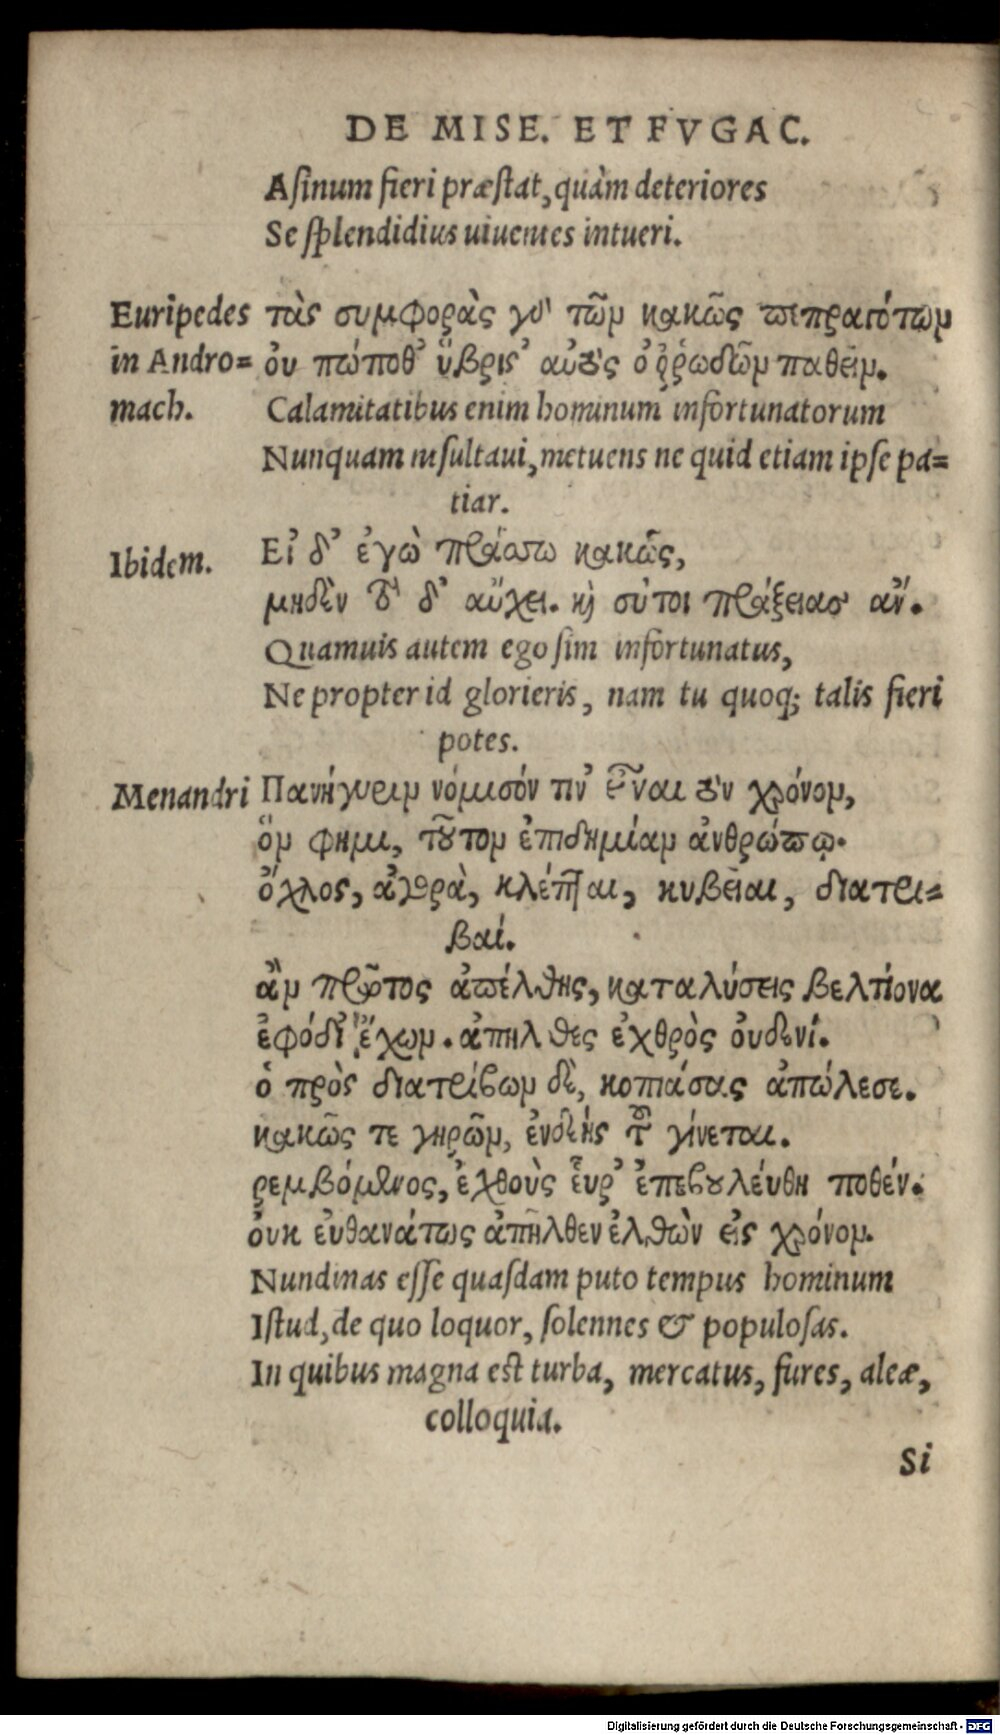 DE MISE. ET FVGAC.
Asinum fieri præstat, quàm deteriores
Se splendidius uiuentes intueri.
Euripedes τὰς συμφορὰς γὸ τῶν κακῶς πεπραγότων
in Andro= ὀυ πώποθ' ὕβρισ' αὐτὸς ὀῤῥωδῶν παθεῖν.
mach. Calamitatibus enim hominum infortunatorum
Nunquam insultaui, metuens ne quid etiam ipse pa=
tiar.
Ibidem. Εἰ δ' ἐγὼ πράσσω κακῶς,
μηδὲν τόδ' αὔχει. καὶ σύ τοι πράξειας ἄν.
Quamuis autem ego sim infortunatus,
Ne propter id glorieris, nam tu quoq; talis fieri
potes.
Menandri Πανήγυριν νόμισόν τιν' εἶναι τὸν χρόνον,
ὅν φημι, τοῦτον ἐπιδημίαν ἀνθρώπῳ.
ὄχλος, ἀγορὰ, κλέπται, κυβεῖαι, διατρι=
βαί.
ἂν πρῶτος ἀπέλθης, καταλύσεις βελτίονα
ἐφόδι' ἔχων. ἀπῆλθες ἐχθρὸς ὀυδενί.
ὁ πρὸς διατρίβων δὲ, κοπιάσας ἀπώλεσε.
κακῶς τε γηρῶν, ἐνδεής του γίνεται.
ῥεμβόμενος, ἐχθροὺς εὗρ' ἐπεβουλέυθη ποθέν.
ὀυκ ἐυθανάτως ἀπῆλθεν ἐλθὼν εἰς χρόνον.
Nundinas esse quasdam puto tempus hominum
Istud, de quo loquor, solennes & populosas.
In quibus magna est turba, mercatus, fures, aleæ,
colloquia.
Si
Digitalisierung gefördert durch die Deutsche Forschungsgemeinschaft - DFG